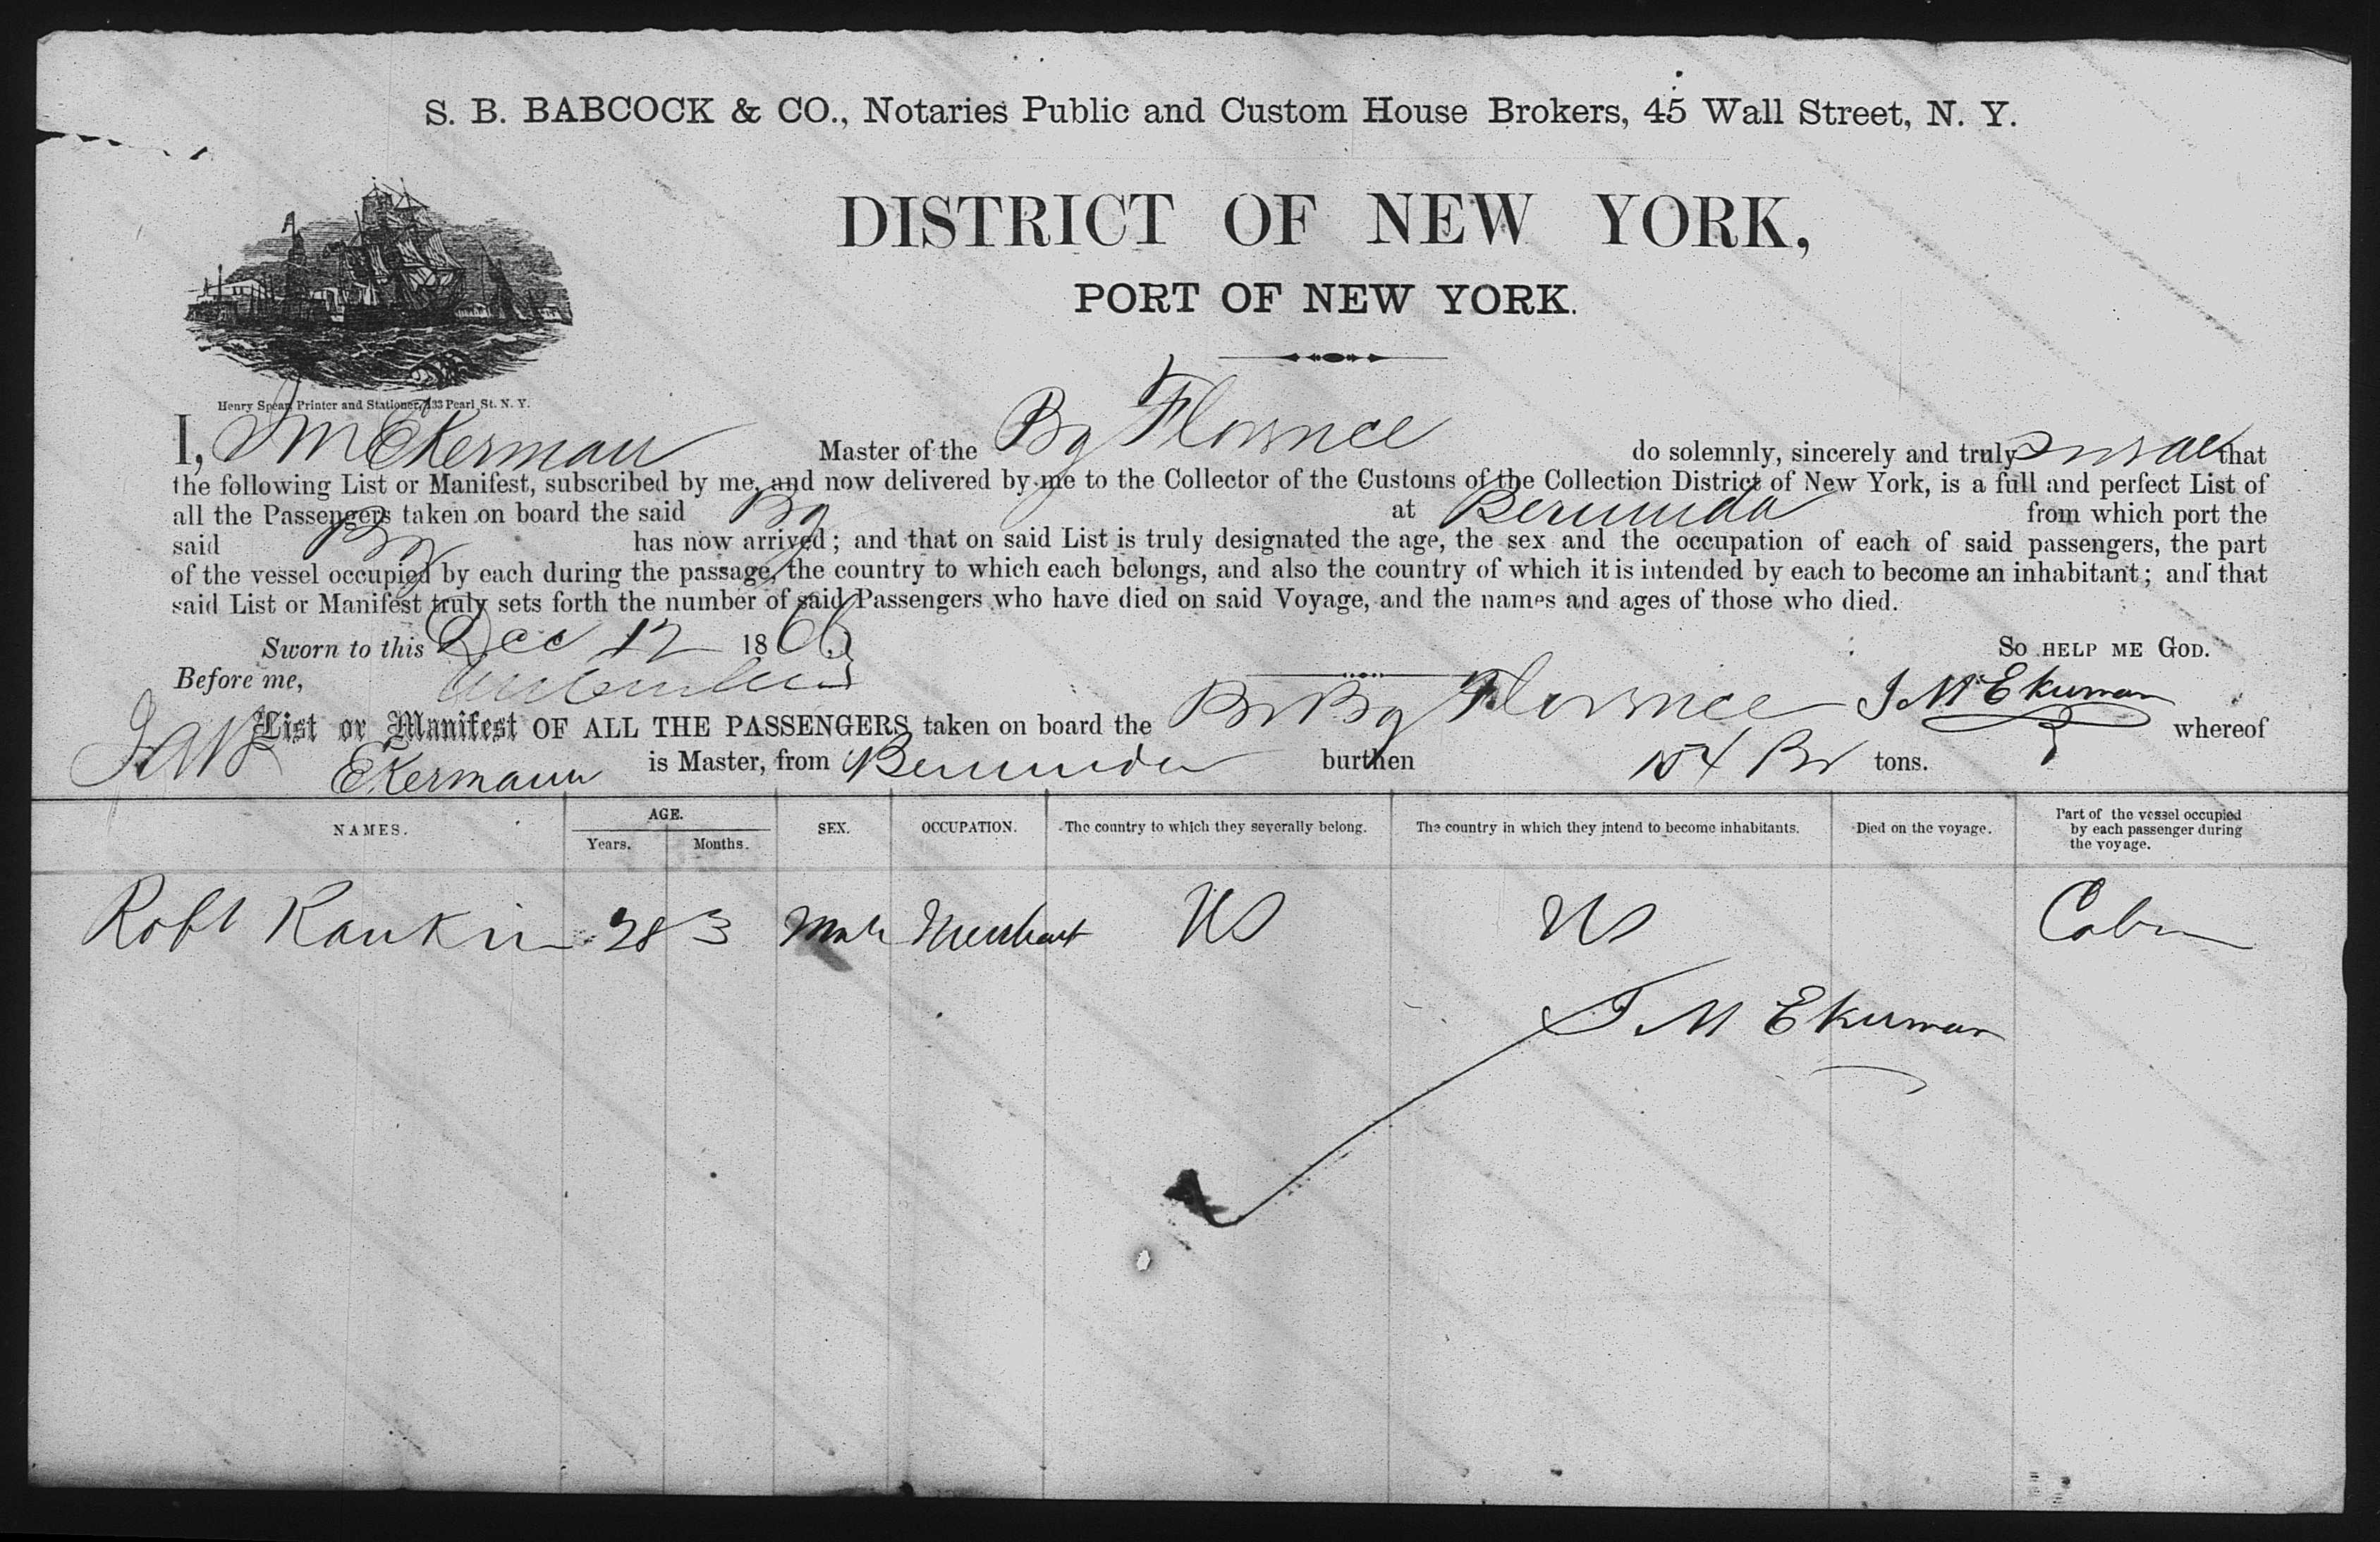 S. B. BABCOCK & CO., Notaries Public and Custom House Brokers, 45 Wall Street, N. Y.
DISTRICT OF NEW YORK,
PORT OF NEW YORK.
Henry Spear, Printer and Stationer, 133 Pearl St. N. Y.
I, J M Ekerman Master of the Bg Florence do solemnly, sincerely and truly swear that
the following List or Manifest, subscribed by me, and now delivered by me to the Collector of the Customs of the Collection District of New York, is a full and perfect List of
all the Passengers taken on board the said Bg at Bermuda from which port the
said Bg has now arrived; and that on said List is truly designated the age, the sex and the occupation of each of said passengers, the part
of the vessel occupied by each during the passage, the country to which each belongs, and also the country of which it is intended by each to become an inhabitant; and that
said List or Manifest truly sets forth the number of said Passengers who have died on said Voyage, and the names and ages of those who died.
Sworn to this Dec 12 1866 SO HELP ME GOD.
Before me, J M Ekerman
List or Manifest OF ALL THE PASSENGERS taken on board the Br Bg Florence whereof
Ekermann is Master, from Bermuda burthen 154 Br tons.
NAMES. AGE. Years. Months. SEX. OCCUPATION. The country to which they severally belong. The country in which they intend to become inhabitants. Died on the voyage. Part of the vessel occupied by each passenger during the voyage.
Robt Rankin 28 3 Male Merchant US US Cabin
J M Ekerman